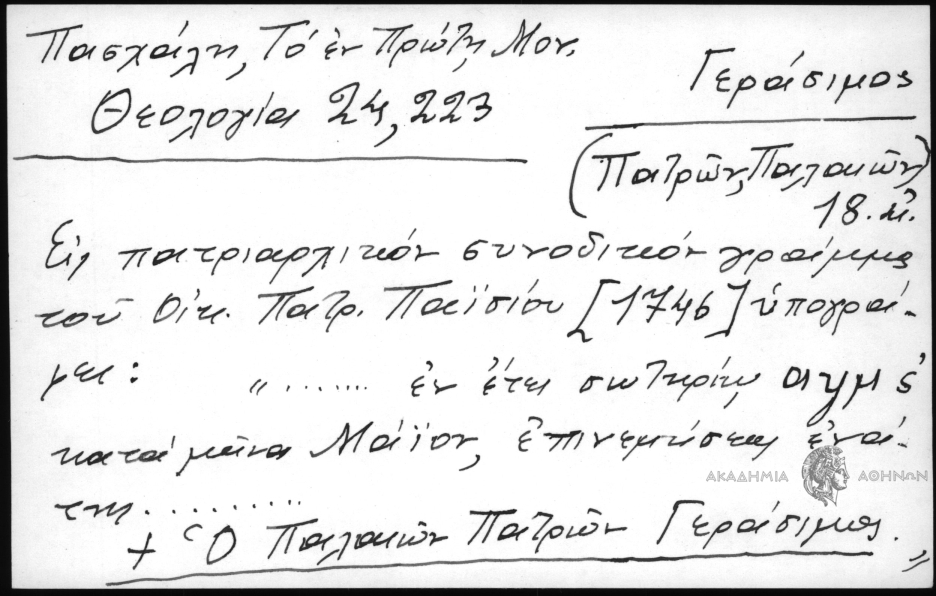 Πασχάλη, Τό ἐν Πρώτῃ Μον.
Θεολογία 24, 223
Γεράσιμος
(Πατρῶν, Παλαιῶν)
18. αἰ.
Εἰς πατριαρχικόν συνοδικόν γράμμα
τοῦ Οἰκ. Πατρ. Παϊσίου [1746] ὑπογρά-
φει: "........ ἐν ἔτει σωτηρίῳ αψμς
κατά μῆνα Μάϊον, ἐπινεμήσεως ἐνά-
της..........
+ Ὁ Παλαιῶν Πατρῶν Γεράσιμος. "
ΑΚΑΔΗΜΙΑ ΑΘΗΝΩΝ